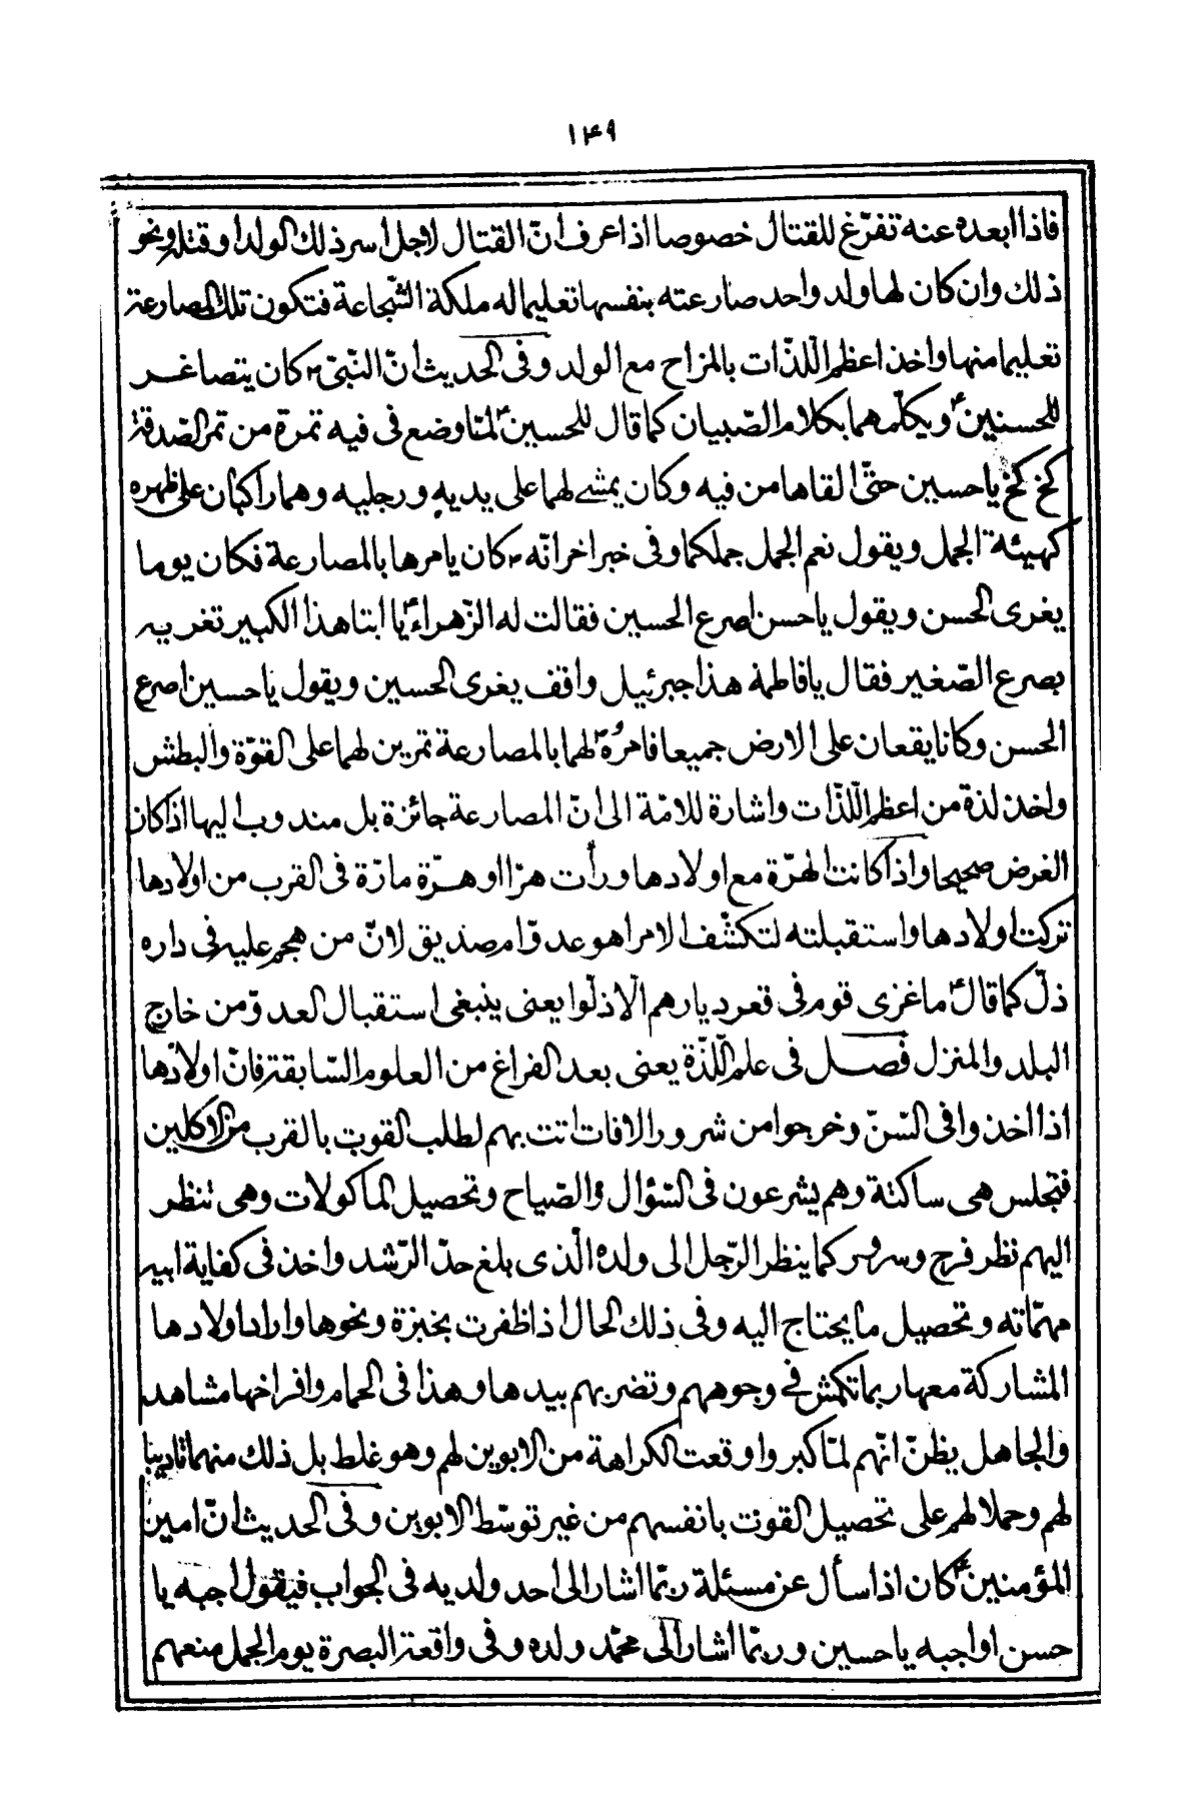 ١٤٩
فاذا ابعده عنه تفرّغ للقتال خصوصا اذا عرف انّ القتال لاجل اسر ذلك الولد او قتله ونحو
ذلك وان كان لها ولد واحد صارعته بنفسها تعليما له ملكة الشّجاعة فتكون تلك المصارعة
تعليما منها واخذ اعظم اللّذات بالمزاح مع الولد وفى الحديث انّ النّبىّ ص كان يتصاغر
للحسنين ع ويكلّمهما بكلام الصّبيان كما قال للحسين ع لمّا وضع فى فيه تمرة من تمر الصّدقة
كخ كخ يا حسين حتّى القاها من فيه وكان يمشى لهما على يديه ورجليه وهما راكبان على ظهره
كهيئة الجمل ويقول نعم الجمل جملكما وفى خبر اخر انّه ص كان يامرها بالمصارعة فكان يوما
يغرى الحسن ويقول يا حسن اصرع الحسين فقالت له الزّهراء ع يا ابتا هذا الكبير تغريه
بصرع الصّغير فقال يا فاطمة هذا جبرئيل واقف يغرى الحسين ويقول يا حسين اصرع
الحسن وكانا يقعان على الارض جميعا فامره ص لهما بالمصارعة تمرين لهما على القوّة والبطش
واخذ لذة من اعظم اللّذات واشارة للامّة الى انّ المصارعة جائزة بل مندوب اليها اذا كان
الغرض صحيحا واذا كانت الهرّة مع اولادها ورأت هرّا او هرّة مارّة فى القرب من اولادها
تركت اولادها واستقبلته لتكشّف الامر اهو عدوّ ام صديق لانّ من هجم عليه فى داره
ذلّ كما قال ع ما غزى قوم فى قعر ديارهم الّا ذلّوا يعنى ينبغى استقبال العدوّ من خارج
البلد والمنزل فصل فى علم اللّذّة يعنى بعد الفراغ من العلوم السّابقة فانّ اولادها
اذا اخذوا فى السّنّ وخرجوا من شرور الافات اتت بهم لطلب القوت بالقرب من الاكلين
فتجلس هى ساكتة وهم يشرعون فى السّؤال والصّياح وتحصيل الماكولات وهى تنظر
اليهم نظر فرح وسرور كما ينظر الرّجل الى ولده الّذى بلغ حدّ الرّشد واخذ فى كفاية ابيه
مهمّاته وتحصيل ما يحتاج اليه وفى ذلك الحال اذا ظفرت بخبزة ونحوها واراد اولادها
المشاركة معها ربما تكمش فى وجوههم وتضربهم بيدها وهذا فى الحمام وافراخها مشاهد
والجاهل يظنّ انّهم لمّا كبروا وقعت الكراهة من الابوين لهم وهو غلط بل ذلك منهما تاديبا
لهم وحملا لهم على تحصيل القوت بانفسهم من غير توسّط الابوين وفى الحديث انّ امير
المؤمنين ع كان اذا سأل عن مسئلة ربّما اشار الى احد ولديه فى الجواب فيقول اجبه يا
حسن او اجبه يا حسين وربّما اشار الى محمّد ولده وفى واقعة البصرة يوم الجمل منعهم